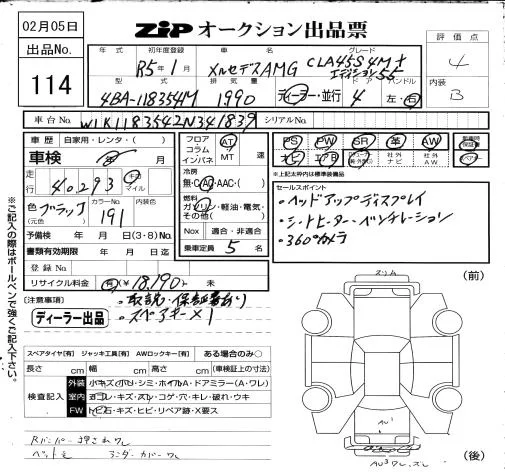 02月05日
ZiP オークション出品票
出品No.
114
評価点
4
内装
B
年式 初年度登録 車名 グレード
R5年1月 メルセデスAMG CLA45S 4M+
エディション55
型式 排気量 ドア ハンドル
4BA-118354M 1990 ディーラー・並行 4 左・右
車台No. W1K1183542N341839 シリアルNo.
車歴 自家用・レンタ・( )
車検 年 月
走行 40,293 キロ マイル
色 ブラック
(元色)
カラーNo. 191 内装色
予備検 年 月 日(3・8)No.
書類有効期限 年 月 日
登録No.
リサイクル料金 有(¥18,190) 未
フロア コラム インパネ AT MT 速
冷房
無・C・AC・AAC・( )
燃料
ガソリン・軽油・電気・
その他( )
Nox 適合・非適合
乗車定員 5 名
PS PW SR 革 AW 新車時保証書
ナビ エアB 社外ナビ 社外AW
*上記太枠内は標準装備品
セールスポイント
・ヘッドアップディスプレイ
・シートヒーター・ベンチレーション
・360°カメラ
(注意事項) ・取説・保証書あり
ディーラー出品 ・スペアキー×1
※ご記入の際はボールペンで強くご記入下さい。
スペアタイヤ[有] ジャッキ工具[有] AWロックキー[有] ある場合のみ○
長さ cm 幅 cm 高さ cm (車検証上の寸法)
検査記入
外装 小キズ・小凹・シミ・ホイルA・ドアミラー(A・ワレ)
室内 ヨゴレ・キズ・スレ・コゲ・穴・キレ・破れ・ウキ
FW トビ石・キズ・ヒビ・リペア跡・X要ス
Rバンパー押されワレ
アンダーカバーワレ
(前)
スリム
AU¹
(後)
AU³ ワレ、ズレ